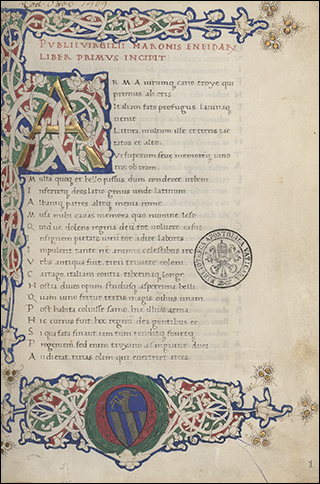 PUBLII VIRGILII MARONIS ENEIDAN
LIBER PRIMUS INCIPIT
ARMA uirumq; cano troye qui
primus ab oris
Italiam fato profugus lauinaq;
uenit
Litora multum ille et terris iac
tatus et alto.
Vi superum seue memorem iuno
nis ob iram
Multa quoq; et bello passus dum conderet urbem
Inferretq; deos latio genus unde latinum
Albaniq; patres alteq; menia rome
Musa mihi causas memora quo numine leso
Quid ue dolens regina deum tot uoluere casus
Insignem pietate uirum tot adire labores
impulerit. tante ne animis celestibus ire
Vrbs antiqua fuit. tirii tenuere coloni
Cartago. italiam contra tiberinaq; longe
Hostia. diues opum studiisq; asperrima belli
Quam iuno fertur terris magis omnibus unam
Post habita coluisse samo. hic illius arma
Hic currus fuit. hoc regnum dea gentibus esse
Si qua fata sinant iam tum tenditq; fouetq;
Progeniem sed enim troyano a sanguine duci
Audierat tirias olim que uerteret arces
BIBLIOTHECA APOSTOLICA VATICANA
1